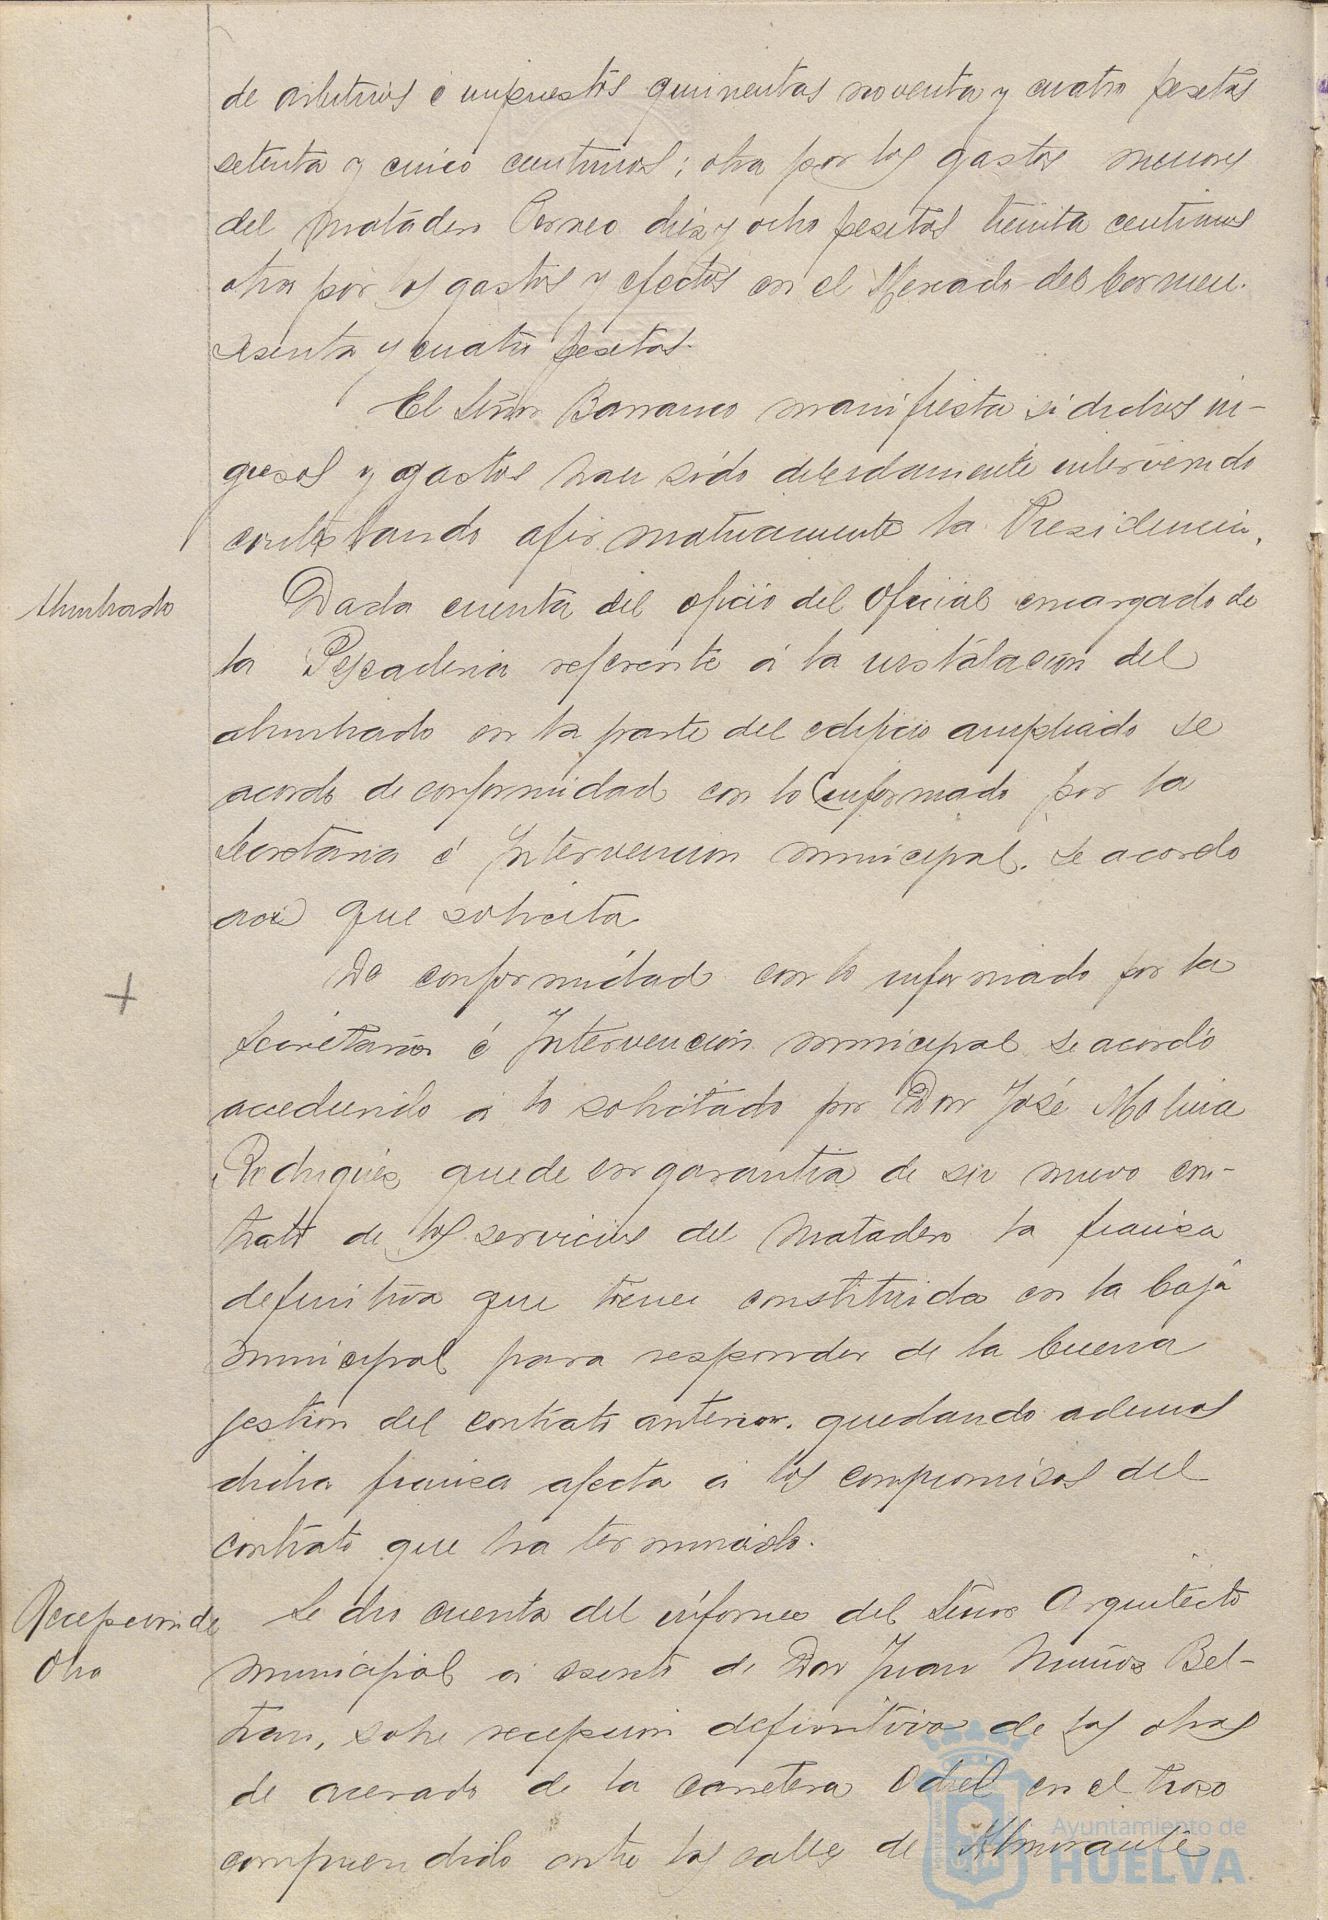 de arbitrios é impuestos quinientas noventa y cuatro pesetas
setenta y cinco centimos; otra por los gastos menores
del matadero diez y ocho pesetas treinta centimos
otra por los gastos y efectos en el Mercado del Carmen.
sesenta y cuatro pesetas.
El Señor Barranco manifiesta si dichos in-
gresos y gastos han sido debidamente intervenido
contestando afirmativamente la Presidencia.
Alumbrado
Dada cuenta del oficio del Oficial encargado de
la Pescaderia referente á la instalacion del
alumbrado en la parte del edificio ampliado se
acordo de conformidad con lo informado por la
Secretaria é Intervencion municipal. se acordo
que solicita
De conformidad con lo informado por la
Secretaria é Intervencion municipal se acordó
accediendo á lo solicitado por Don José Molina
Rodriguez quede en garantia de su nuevo con-
trato de los servicios del Matadero la fianza
definitiva que tiene constituida en la Caja
municipal para responder de la buena
gestion del contrato anterior. quedando ademas
dicha fianza afecta á los compromisos del
contrato que ha terminado.
Recepcion de
Obra
Se dio cuenta del informe del Señor Arquitecto
municipal á escrito de Don Juan Muños Bel-
tran, sobre recepcion definitiva de las obras
de acerado de la carretera Odiel en el trozo
comprendido entre las calles de Almirante
Ayuntamiento de
HUELVA